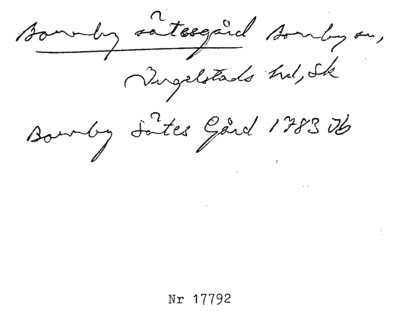 Borrby sätesgård Borrby sn,
Ingelstads hd, Sk
Borrby Sätes Gård 1783 Jb
Nr 17792